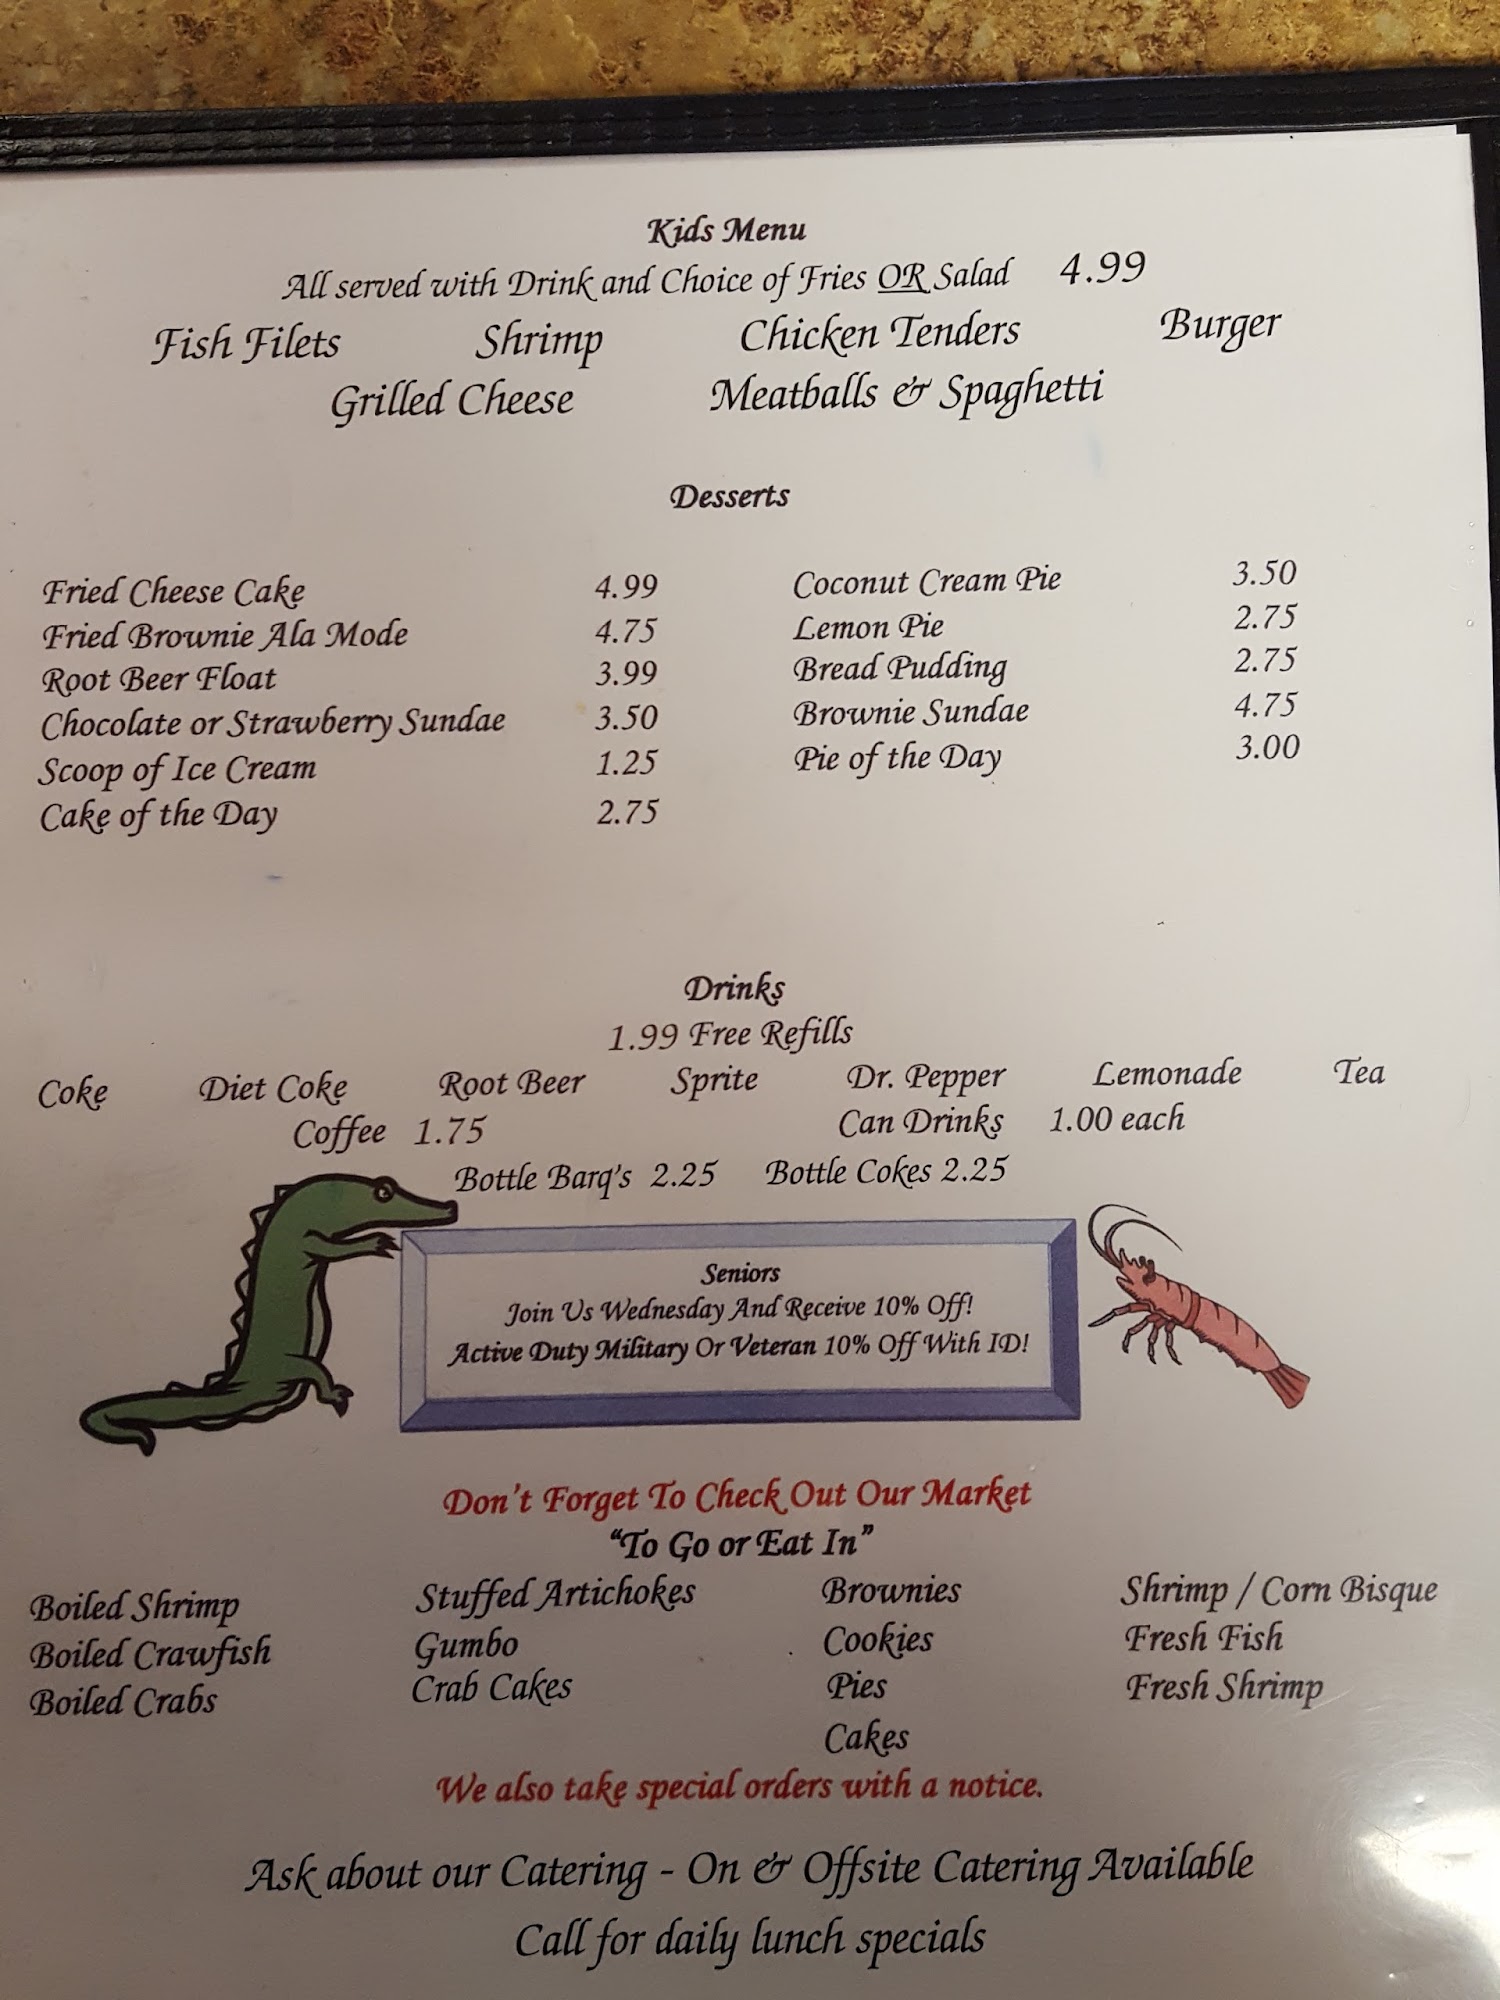 Kids Menu
All served with Drink and Choice of Fries OR Salad 4.99
Fish Filets Shrimp Chicken Tenders Burger
Grilled Cheese Meatballs & Spaghetti
Desserts
Fried Cheese Cake 4.99 Coconut Cream Pie 3.50
Fried Brownie Ala Mode 4.75 Lemon Pie 2.75
Root Beer Float 3.99 Bread Pudding 2.75
Chocolate or Strawberry Sundae 3.50 Brownie Sundae 4.75
Scoop of Ice Cream 1.25 Pie of the Day 3.00
Cake of the Day 2.75
Drinks
1.99 Free Refills
Coke Diet Coke Root Beer Sprite Dr. Pepper Lemonade Tea
Coffee 1.75 Can Drinks 1.00 each
Bottle Barq's 2.25 Bottle Cokes 2.25
Seniors
Join Us Wednesday And Receive 10% Off!
Active Duty Military Or Veteran 10% Off With ID!
Don't Forget To Check Out Our Market
"To Go or Eat In"
Boiled Shrimp Stuffed Artichokes Brownies Shrimp / Corn Bisque
Boiled Crawfish Gumbo Cookies Fresh Fish
Boiled Crabs Crab Cakes Pies Fresh Shrimp
Cakes
We also take special orders with a notice.
Ask about our Catering - On & Offsite Catering Available
Call for daily lunch specials